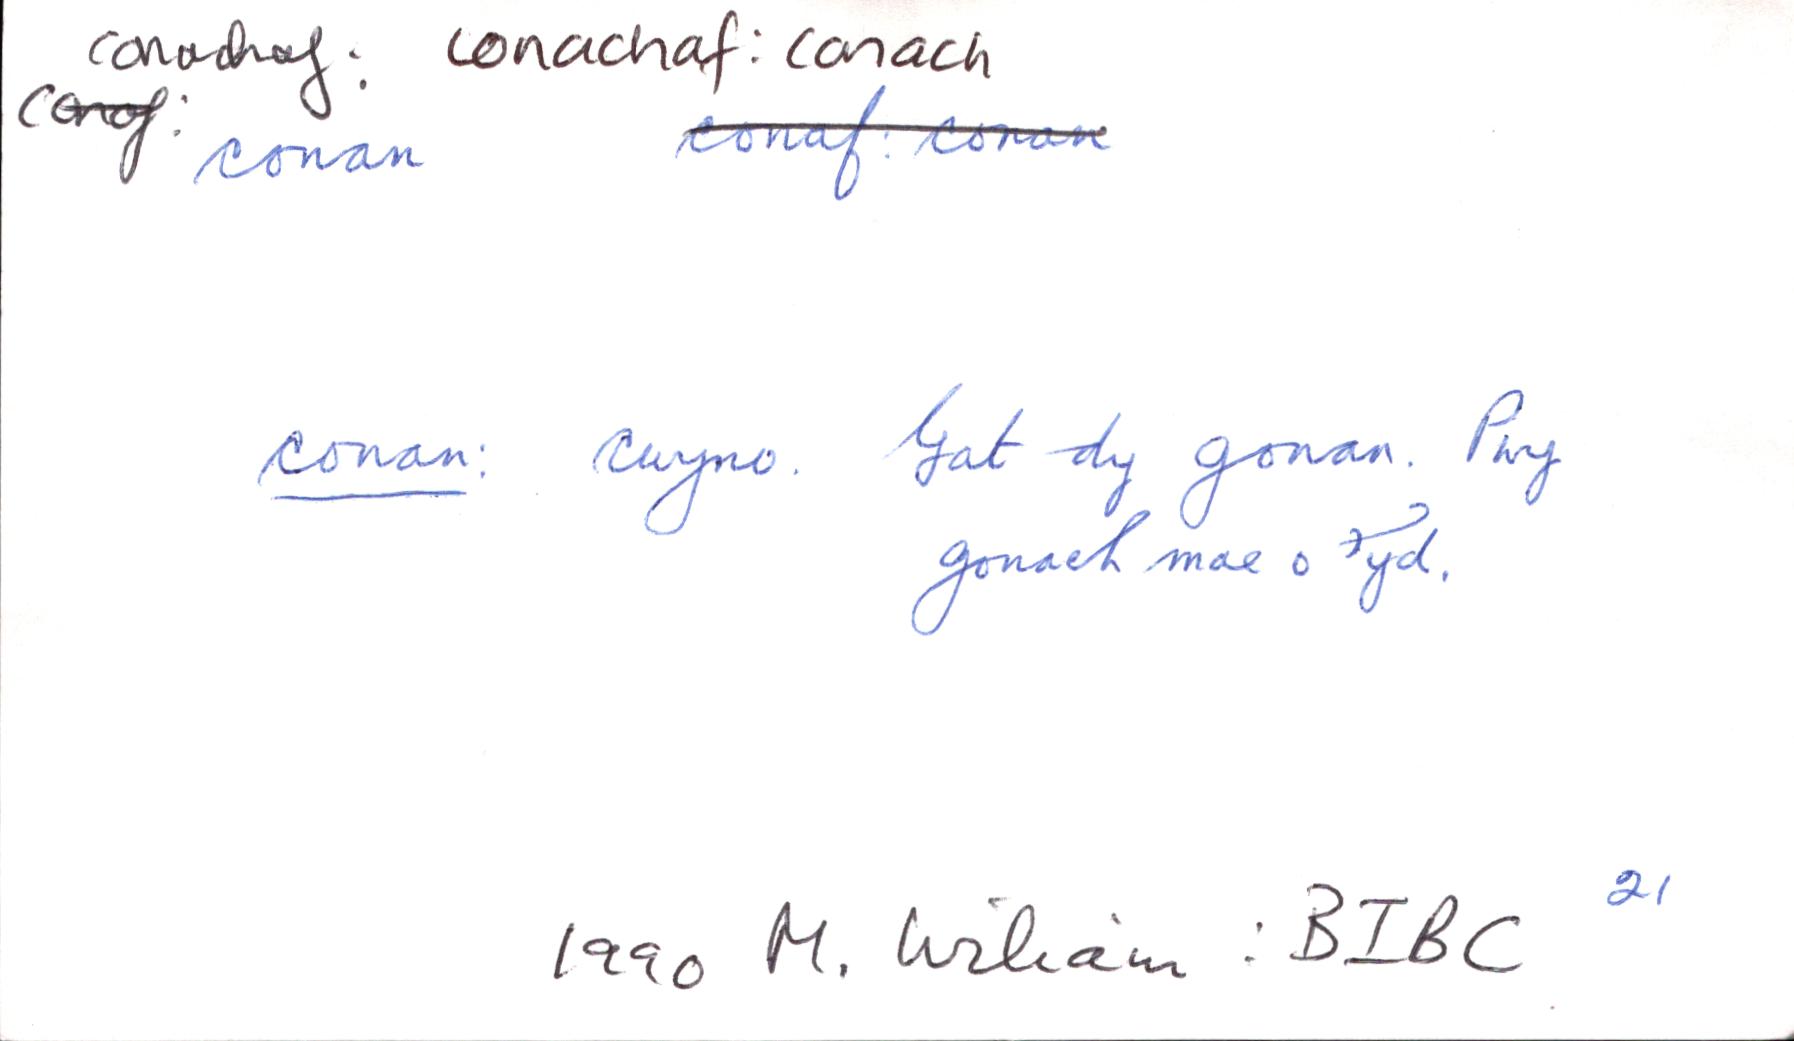 conachaf: conachaf: conach
conaf:
conan conaf: conan
conan: cwyno. Gat dy gonan. Pwy
gonach mae o 'yd.
1990 M. Wiliam : BIBC 21